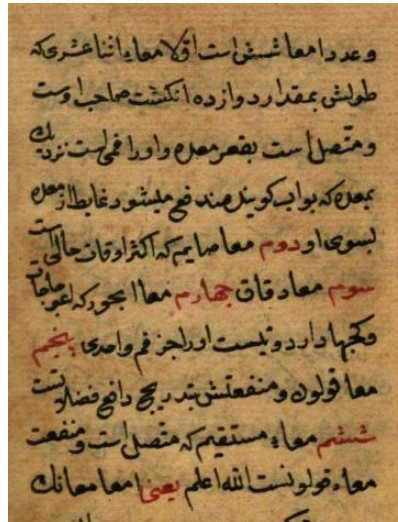 و عدد امعا شش است اوّلا معاء اثنا عشری که
طولش بمقدار دوازده انکشت صاحب اوست
و متّصل است بقعر معده و او را فمی است نزدیک
بمعده که بواب کویند مندفع میشود غایط از معده
بسوی او دوم معا صایم که اکثر اوقات خالی است
سوم معا دقاق چهارم معا اعور که
و کجیها دارد و نیست او را جز فم واحدی پنجم
معا قولون و منفعتش بتدریج دافع فضلاتست
ششم معاء مستقیم که متّصل است و منفعت
معاء قولونست الله اعلم یعنی امعا معانک